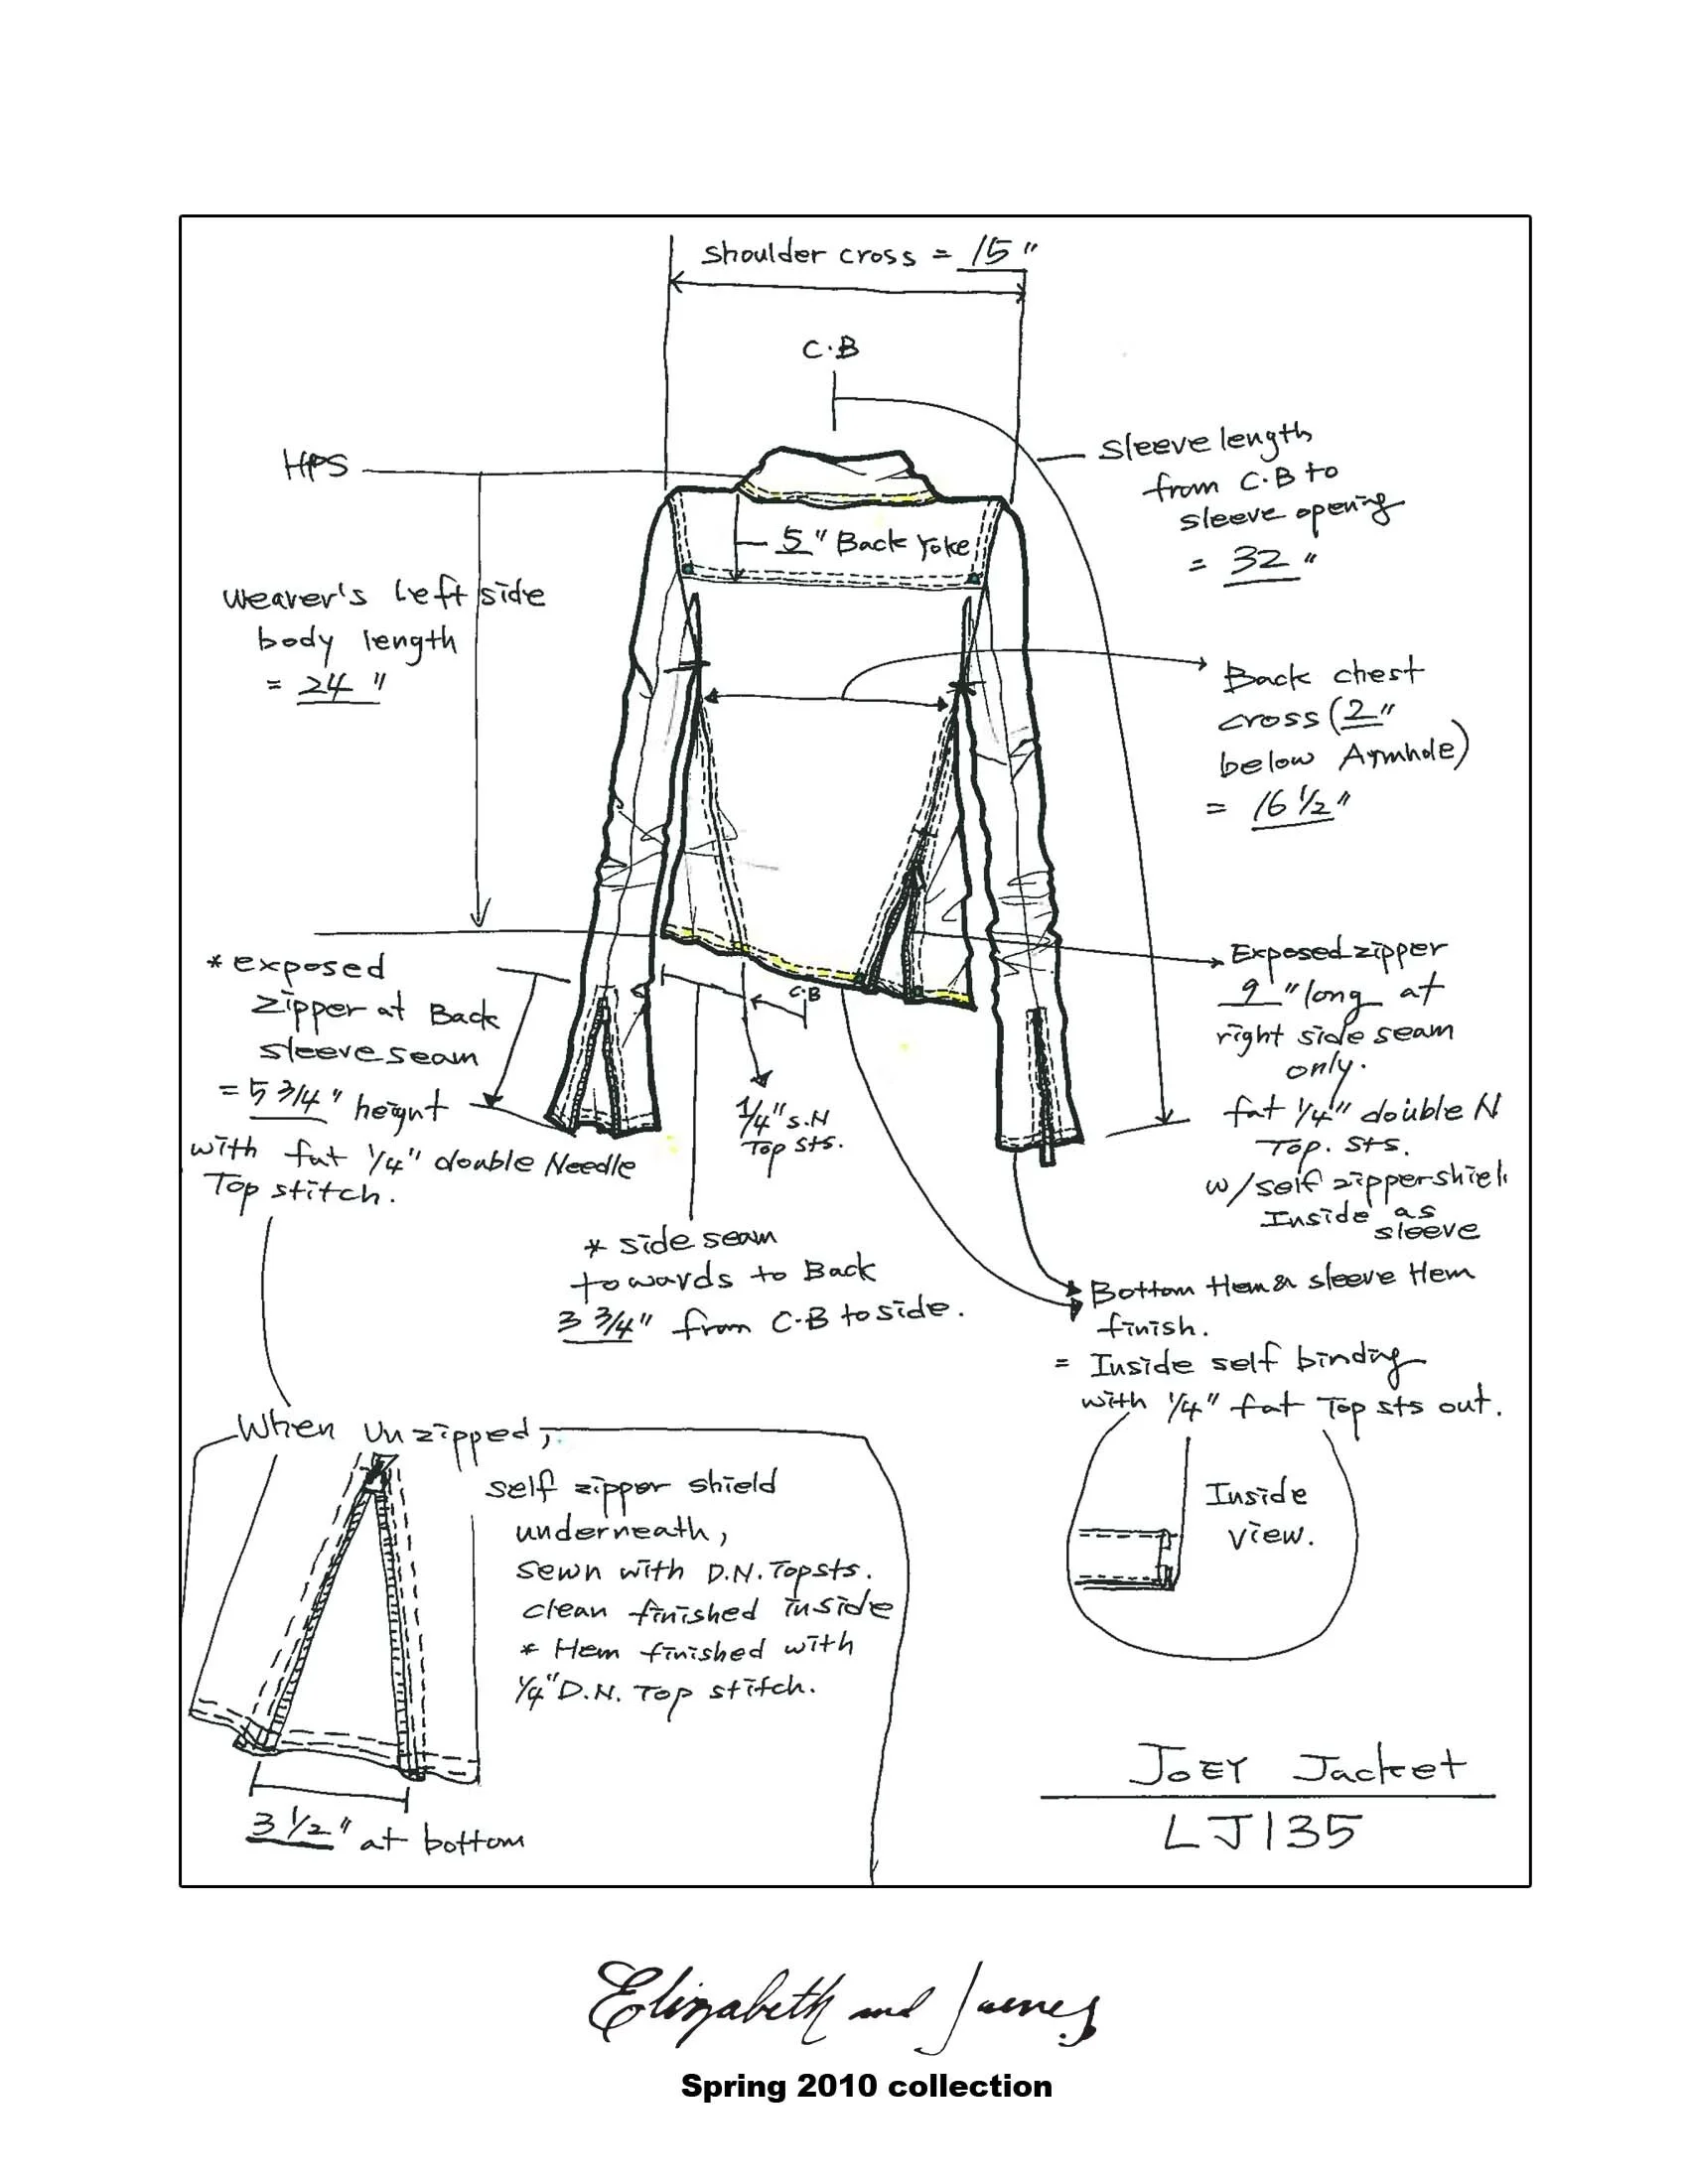 shoulder cross = 15"
C.B
HPS
sleeve length
from C.B to
sleeve opening
= 32"
5" Back Yoke
weaver's left side
body length
= 24"
Back chest
cross (2"
below Armhole)
= 16 1/2"
* exposed
zipper at Back
sleeve seam
= 5 3/4" height
with fat 1/4" double Needle
Top stitch.
C.B
1/4" S.N
Top sts.
Exposed zipper
9" long at
right side seam
only.
fat 1/4" double N
Top. sts.
w/self zipper shiel
Inside as
sleeve
* side seam
towards to Back
3 3/4" from C.B to side.
Bottom Hem & sleeve Hem
finish.
= Inside self binding
with 1/4" fat Top sts out.
Inside
view.
When unzipped,
self zipper shield
underneath,
sewn with D.N. Top sts.
clean finished inside
* Hem finished with
1/4" D.N. Top stitch.
3 1/2" at bottom
JOEY Jacket
LJ135
Elizabeth and James
Spring 2010 collection